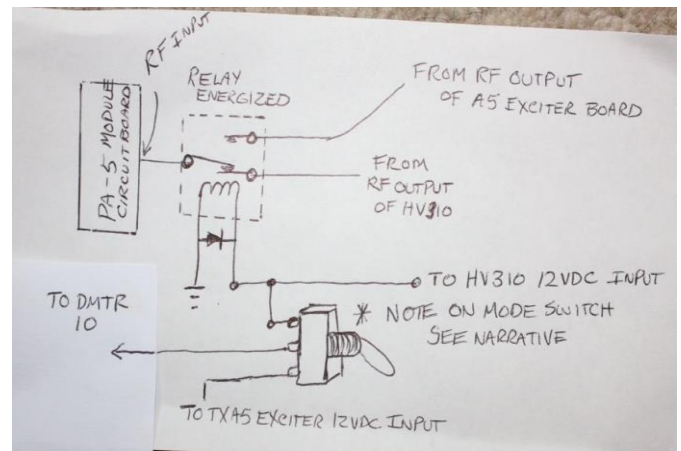 RF INPUT
PA-5 MODULE
CIRCUIT BOARD
RELAY
ENERGIZED
FROM RF OUTPUT
OF A5 EXCITER BOARD
FROM
RF OUTPUT
OF HV310
TO HV310 12VDC INPUT
TO DMTR
10
* NOTE ON MODE SWITCH
SEE NARRATIVE
TO TXA5 EXCITER 12VDC INPUT